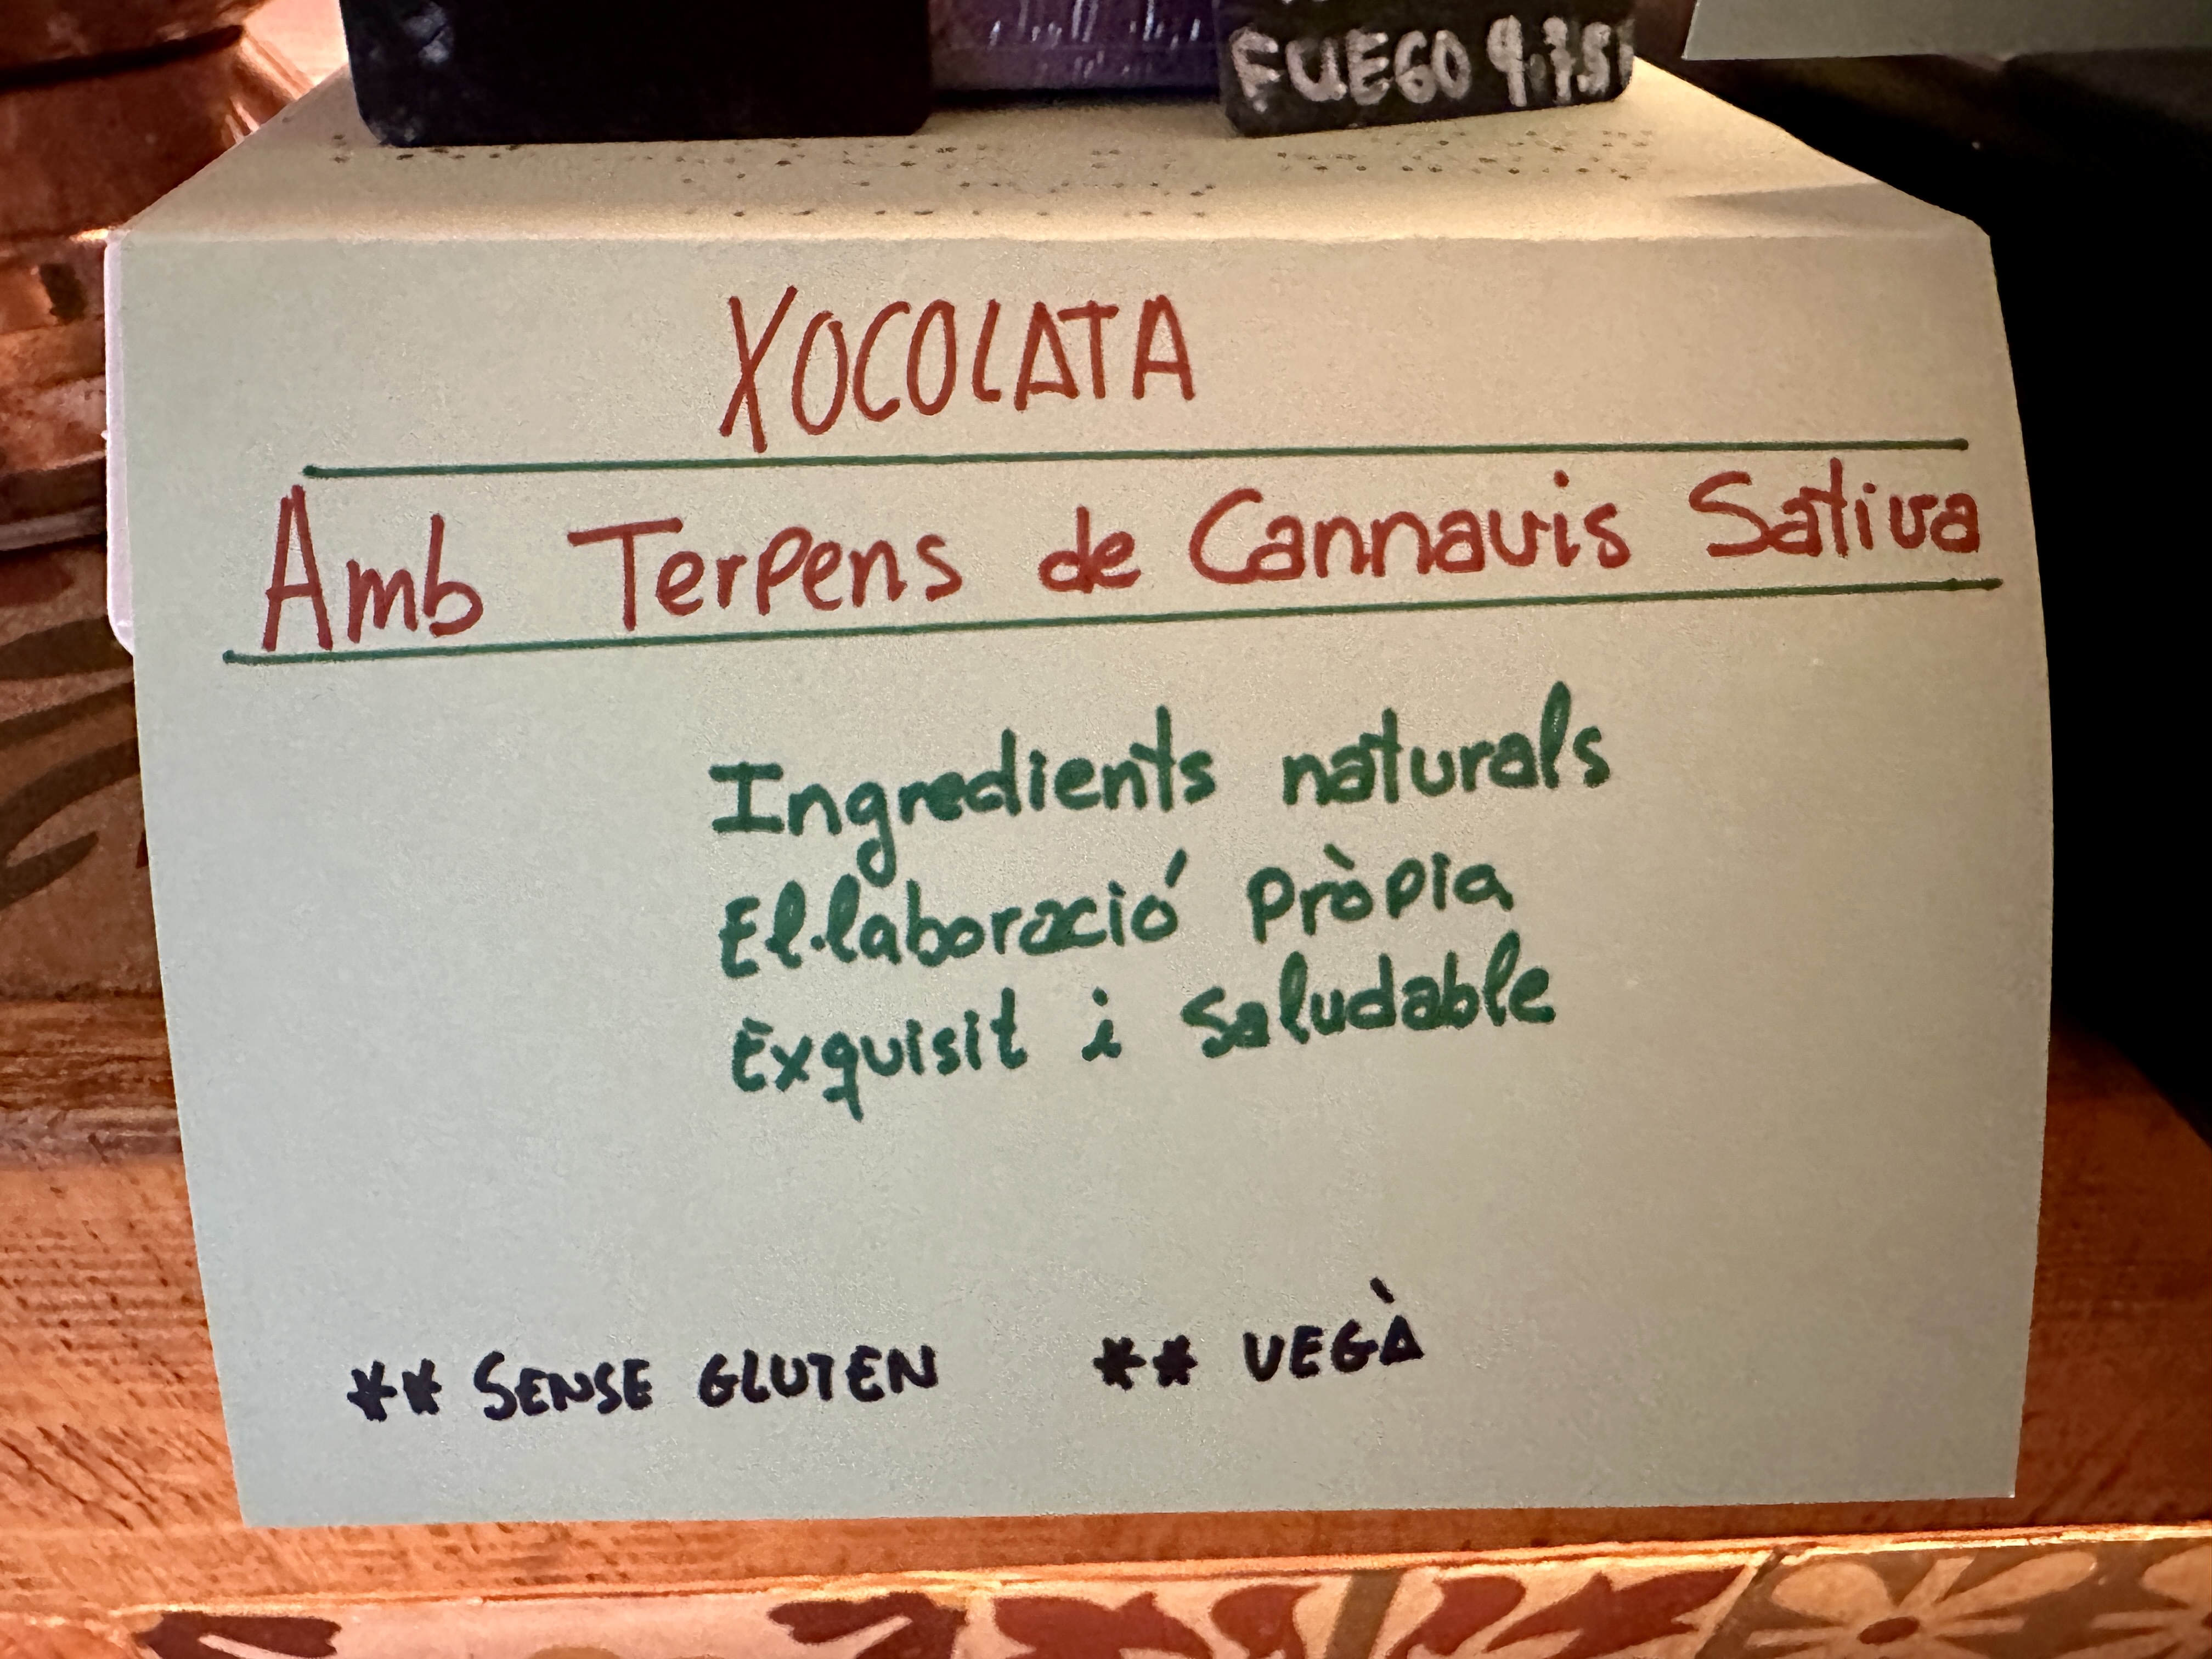 FUEGO
XOCOLATA
Amb Terpens de Cannavis Sativa
Ingredients naturals
El·laboració Pròpia
Exquisit i Saludable
** SENSE GLUTEN ** VEGÀ